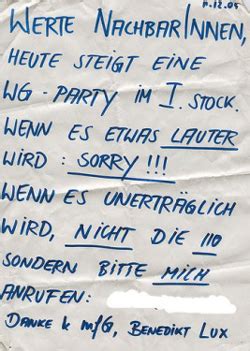 11.12.05
WERTE NACHBARINNEN,
HEUTE STEIGT EINE
WG-PARTY IM I. STOCK.
WENN ES ETWAS LAUTER
WIRD: SORRY!!!
WENN ES UNERTRÄGLICH
WIRD, NICHT DIE 110
SONDERN BITTE MICH
ANRUFEN:
DANKE & M/G, BENEDIKT LUX